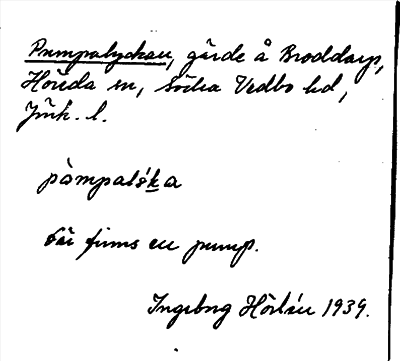 Pumpalyckan, gärde å Broddarp,
Höreda sn, Södra Vedbo hd,
Jönk. l.
Där finns en pump.
Ingebrg Hörlén 1939.